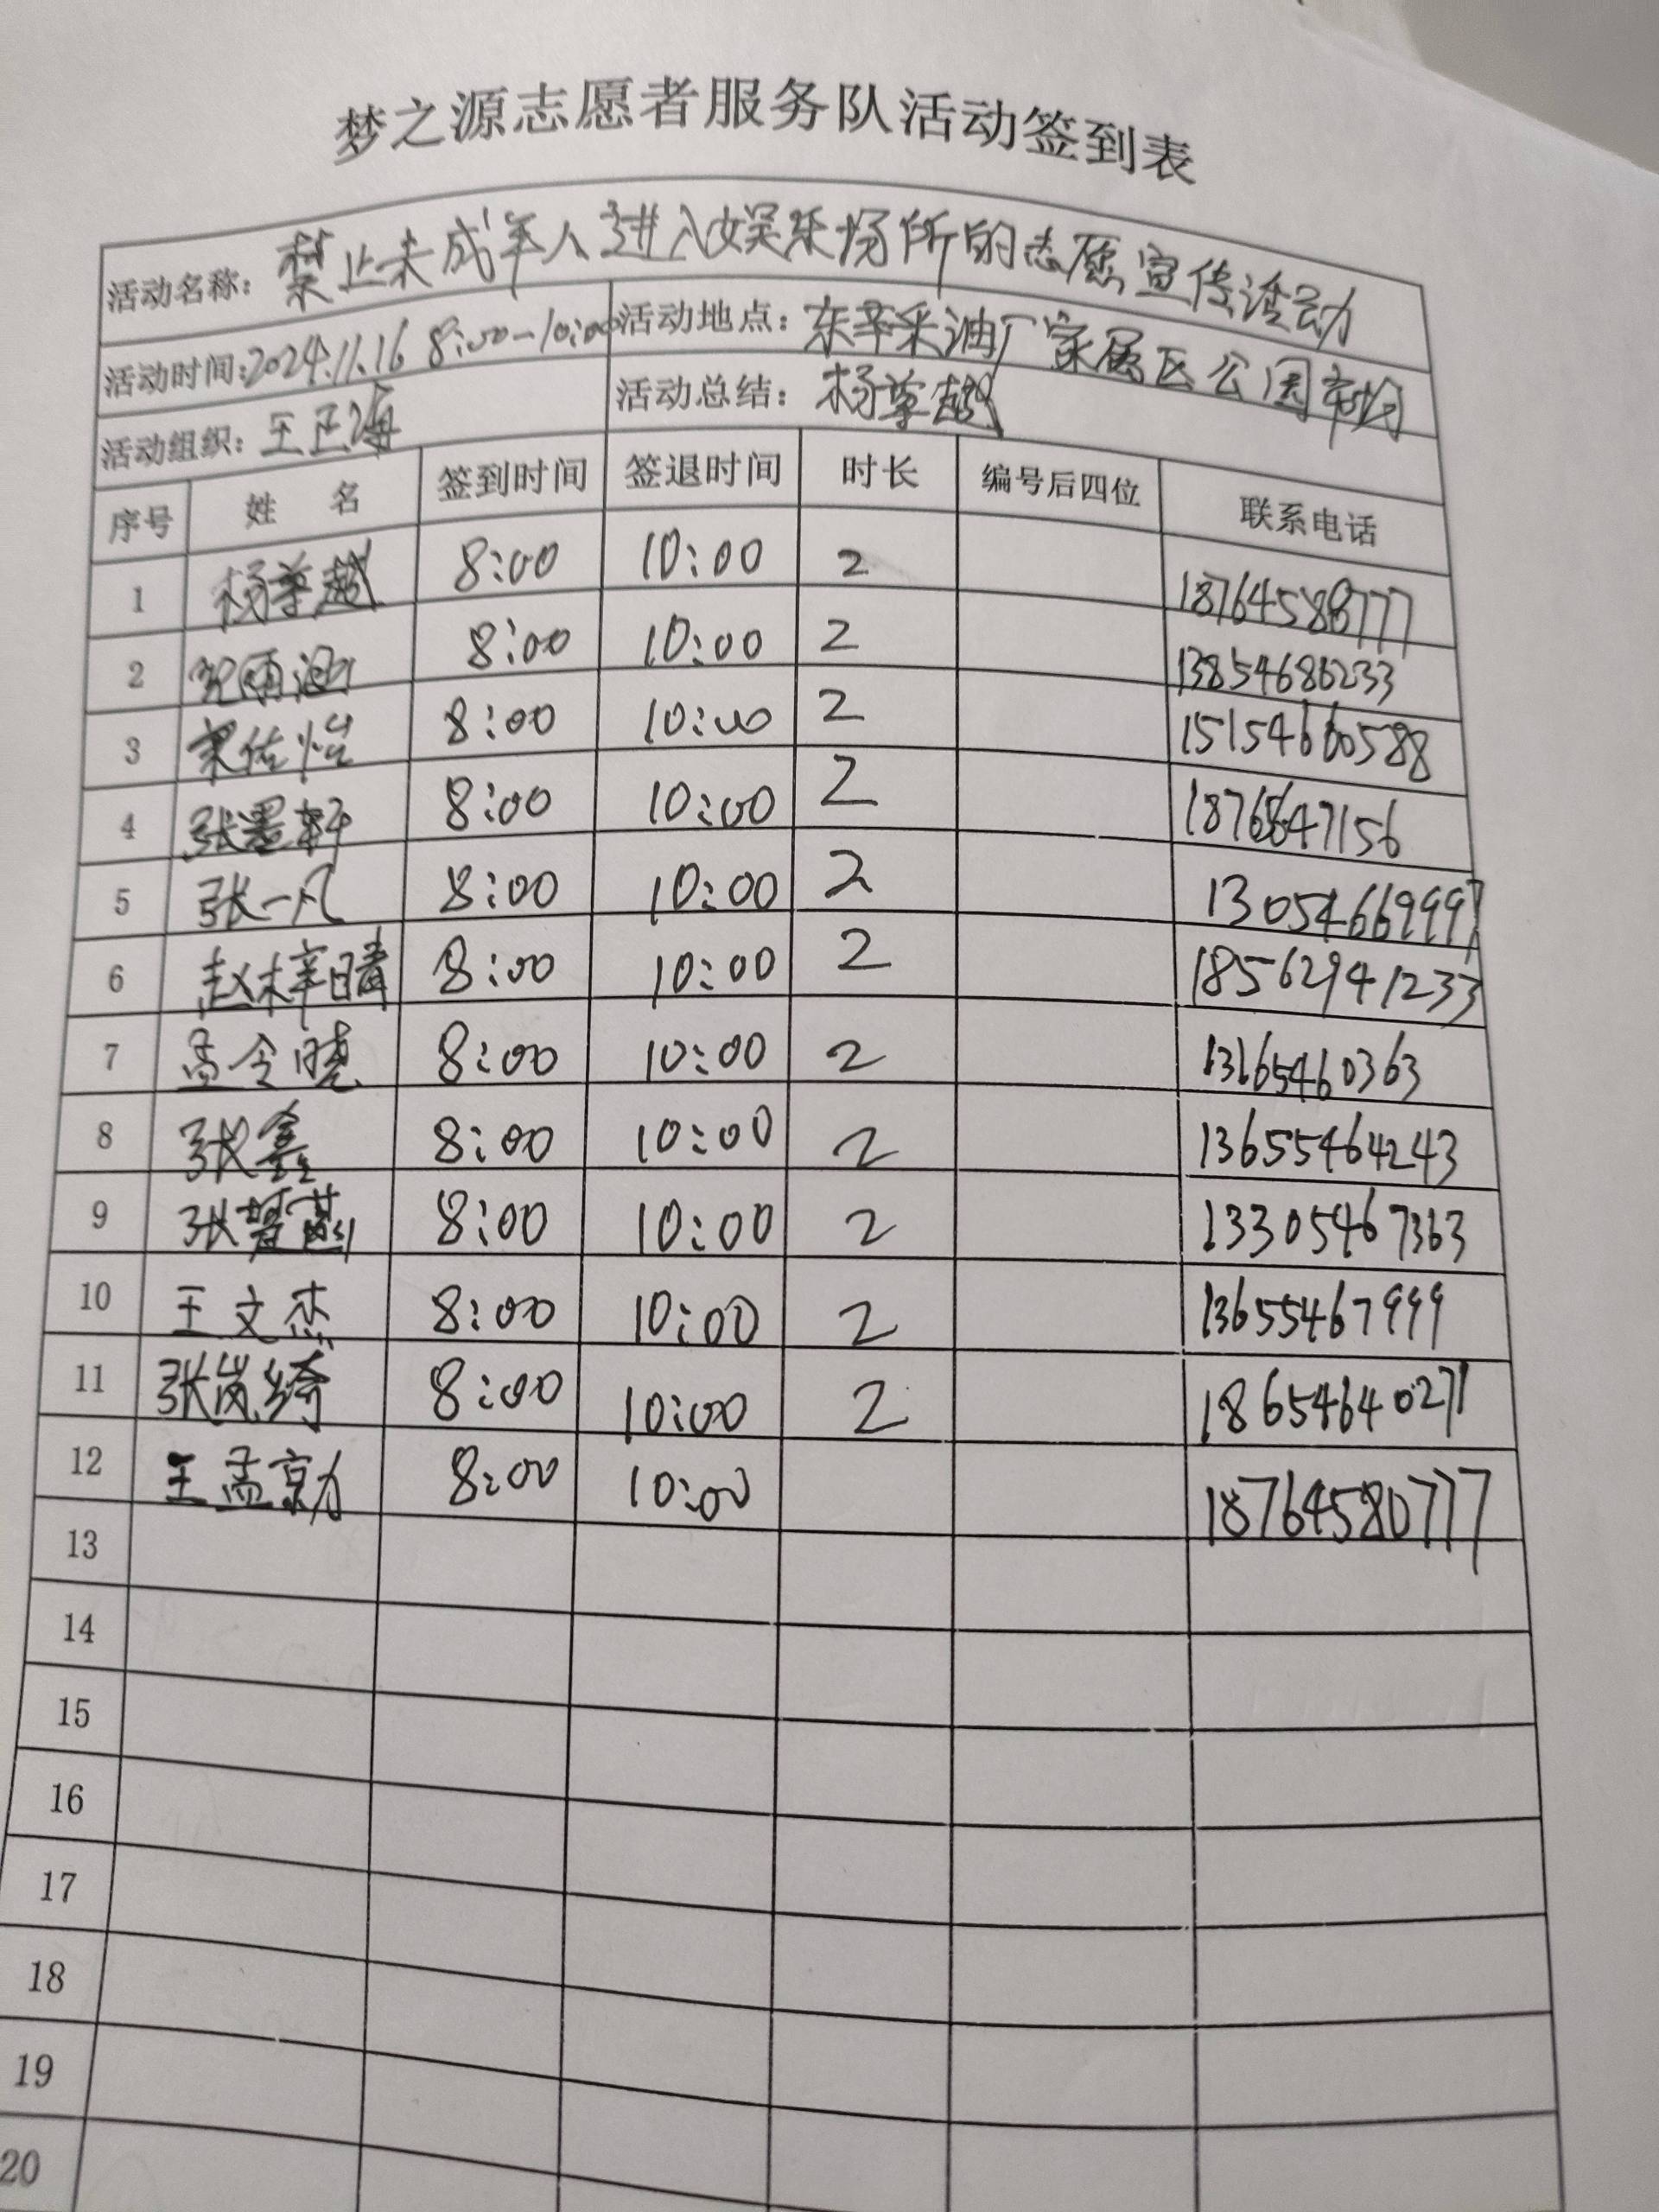 梦之源志愿者服务队活动签到表
活动名称: 禁止未成年人进入娱乐场所的志愿宣传活动
活动时间:2024.11.16 8:00-10:00 活动地点: 东辛采油厂家属区公园
活动组织: 王正海 活动总结: 杨尊越
序号 姓 名 签到时间 签退时间 时长 编号后四位 联系电话
1 杨尊越 8:00 10:00 2 18764588777
2 雨涵 8:00 10:00 2 13854686233
3 梁佑怡 8:00 10:00 2 15154660588
4 张墨轩 8:00 10:00 2
5 张一凡 8:00 10:00 2 13054669997
6 赵梓晴 8:00 10:00 2 18562941233
7 孟令晓 8:00 10:00 2 13165460363
8 张鑫 8:00 10:00 2 13655464243
9 张 8:00 10:00 2 13305467363
10 王文杰 8:00 10:00 2 13655467999
11 张岚绮 8:00 10:00 2 18654640271
12 王孟勍 8:00 10:00 18764580777
13
14
15
16
17
18
19
20